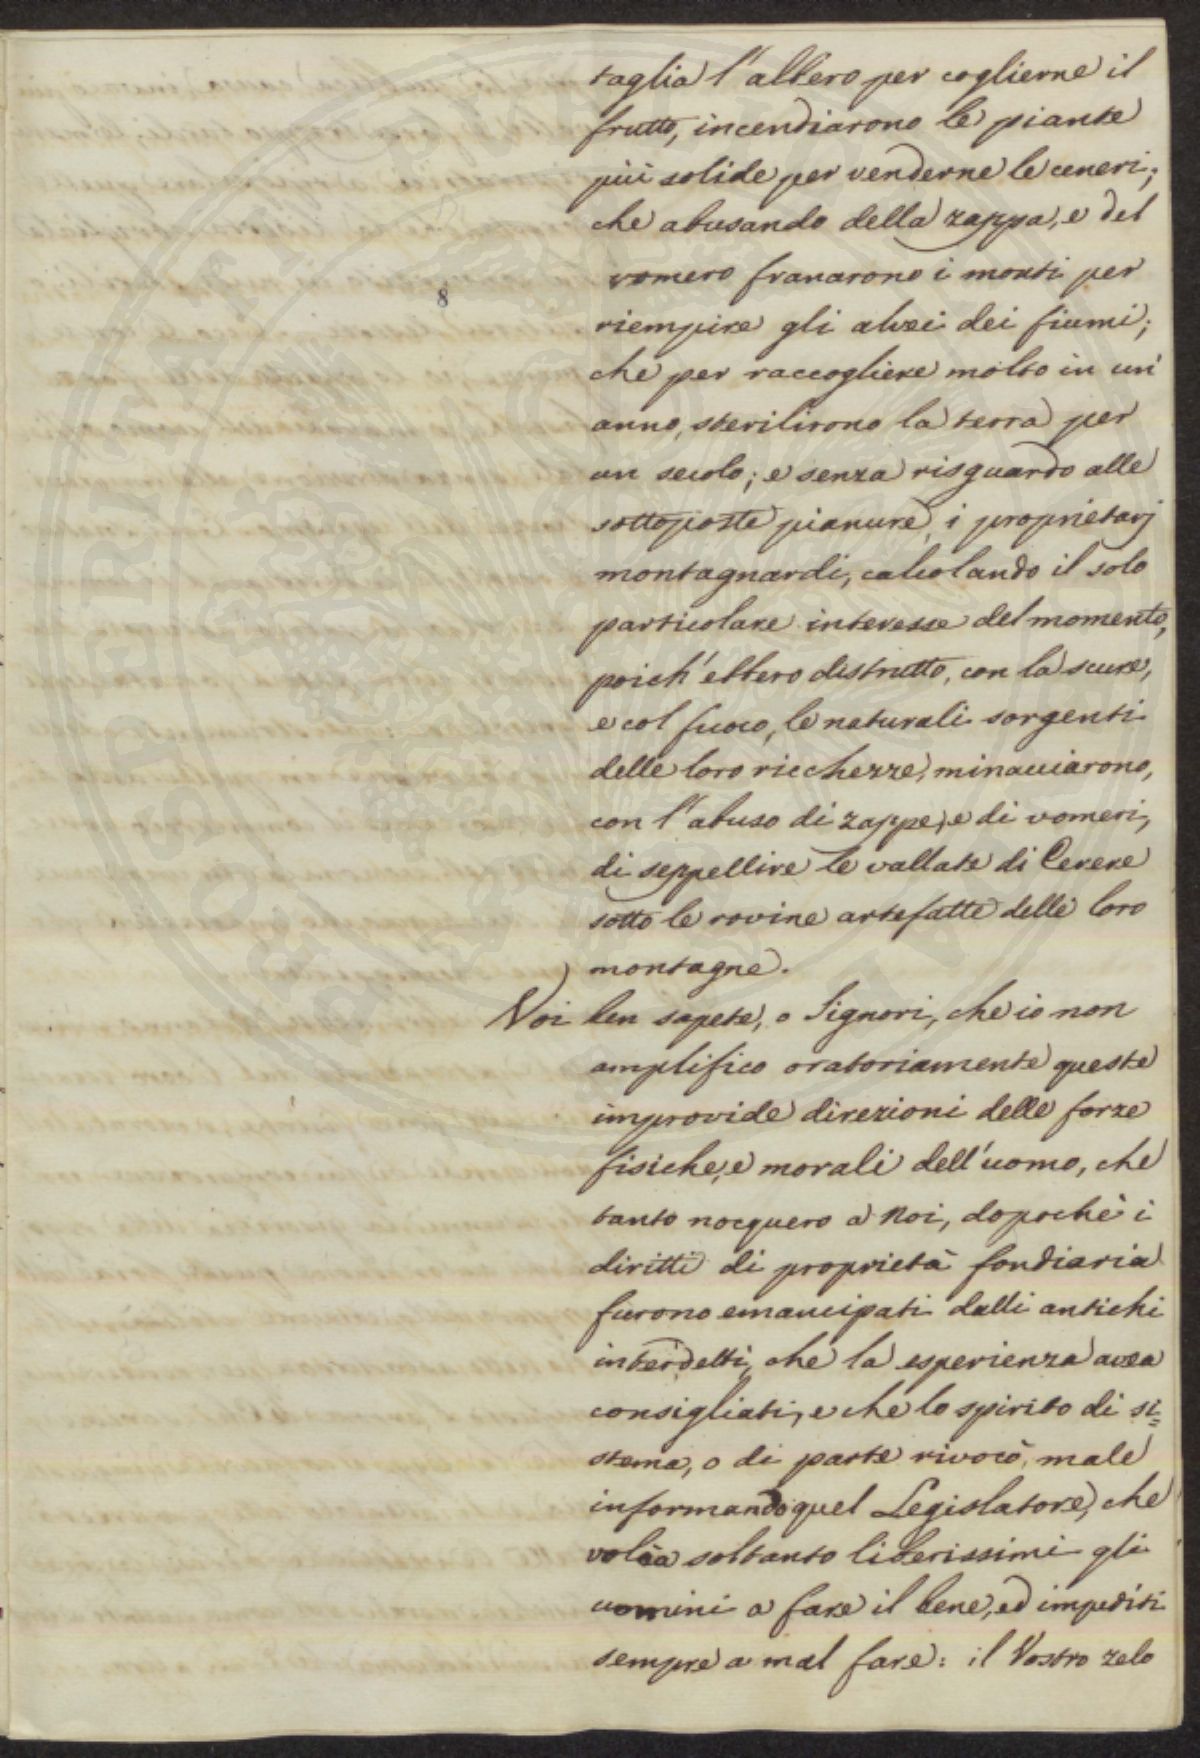 taglia l'albero per coglierne il
frutto, incendiarono le piante
più solide per venderne le ceneri;
che abusando della zappa, e del
vomero franarono i monti per
8
riempire gli alvei dei fiumi;
che per raccogliere molto in un'
anno, sterilirono la terra per
un secolo; e senza risguardo alle
sottoposte pianure, i proprietarj
montagnardi, calcolando il solo
particolare interesse del momento,
poich' ebbero distrutto, con la scure,
e col fuoco, le naturali sorgenti
delle loro ricchezze, minacciarono,
con l'abuso di zappe, e di vomeri,
di seppellire le vallate di Cerere
sotto le rovine artefatte delle loro
montagne.
Voi ben sapete, o Signori, che io non
amplifico oratoriamente queste
improvide direzioni delle forze
fisiche, e morali dell'uomo, che
tanto nocquero a Noi, dopochè i
diritti di proprietà fondiaria
furono emancipati dalli antichi
interdetti, che la esperienza avea
consigliati, e che lo spirito di si=
stema, o di parte rivocò, male
informando quel Legislatore, che
volea soltanto liberissimi gli
uomini a fare il bene, ed impediti
sempre a mal fare: il Vostro zelo